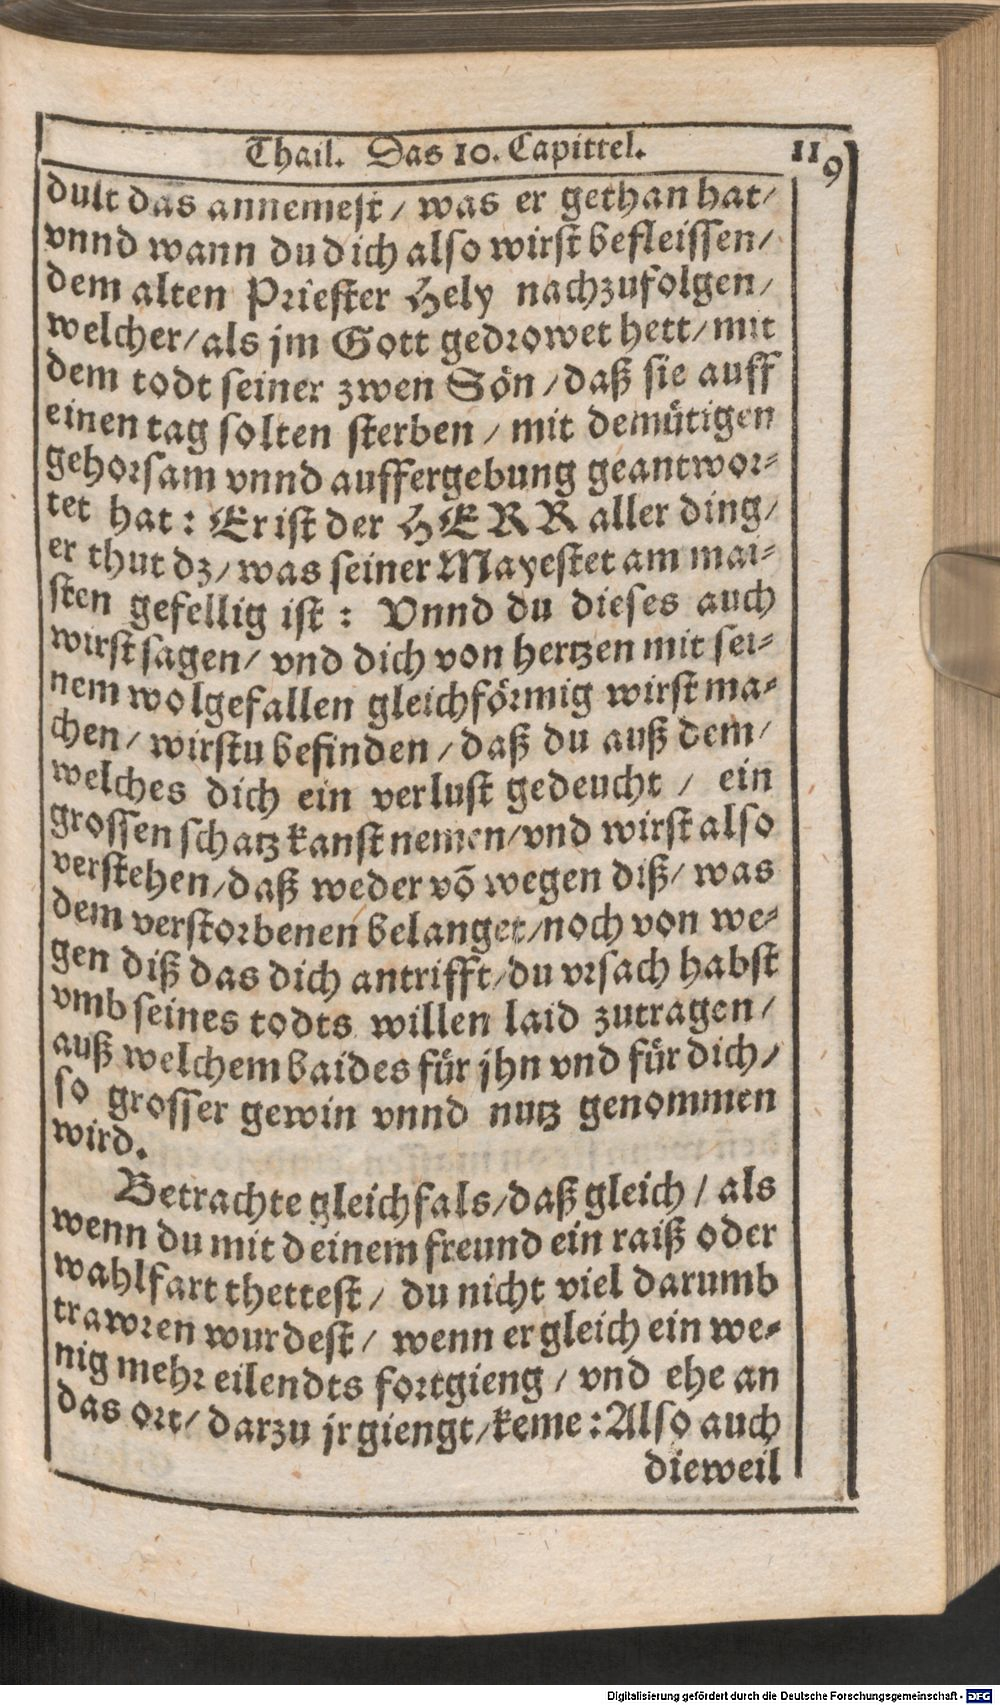 Thail. Das 10. Capittel. 119
dult das annemest / was er gethan hat/
vnnd wann du dich also wirst befleissen/
dem alten Priester Hely nachzufolgen/
welcher/ als jm Gott gedrowet hett/ mit
dem todt seiner zwen Sön / daß sie auff
einen tag solten sterben / mit demütigen
gehorsam vnnd auffergebung geantwor-
tet hat : Er ist der HERR aller ding/
er thut dz/ was seiner Mayestet am mai-
sten gefellig ist : Vnnd du dieses auch
wirst sagen/ vnd dich von hertzen mit sei-
nem wolgefallen gleichförmig wirst ma-
chen/ wirstu befinden / daß du auß dem/
welches dich ein verlust gedeucht / ein
grossen schatz kanst nemen/ vnd wirst also
verstehen/ daß weder võ wegen diß/ was
dem verstorbenen belanget/ noch von we-
gen diß das dich antrifft/ du vrsach habst
vmb seines todts willen laid zutragen/
auß welchem baides für jhn vnd für dich/
so grosser gewin vnnd nutz genommen
wird.
Betrachte gleichfals/ daß gleich / als
wenn du mit deinem freund ein raiß oder
wahlfart thettest/ du nicht viel darumb
trawren wurdest / wenn er gleich ein we-
nig mehr eilendts fortgieng / vnd ehe an
das ort/ darzu jr giengt/ keme : Also auch
dieweil
Digitalisierung gefördert durch die Deutsche Forschungsgemeinschaft - DFG